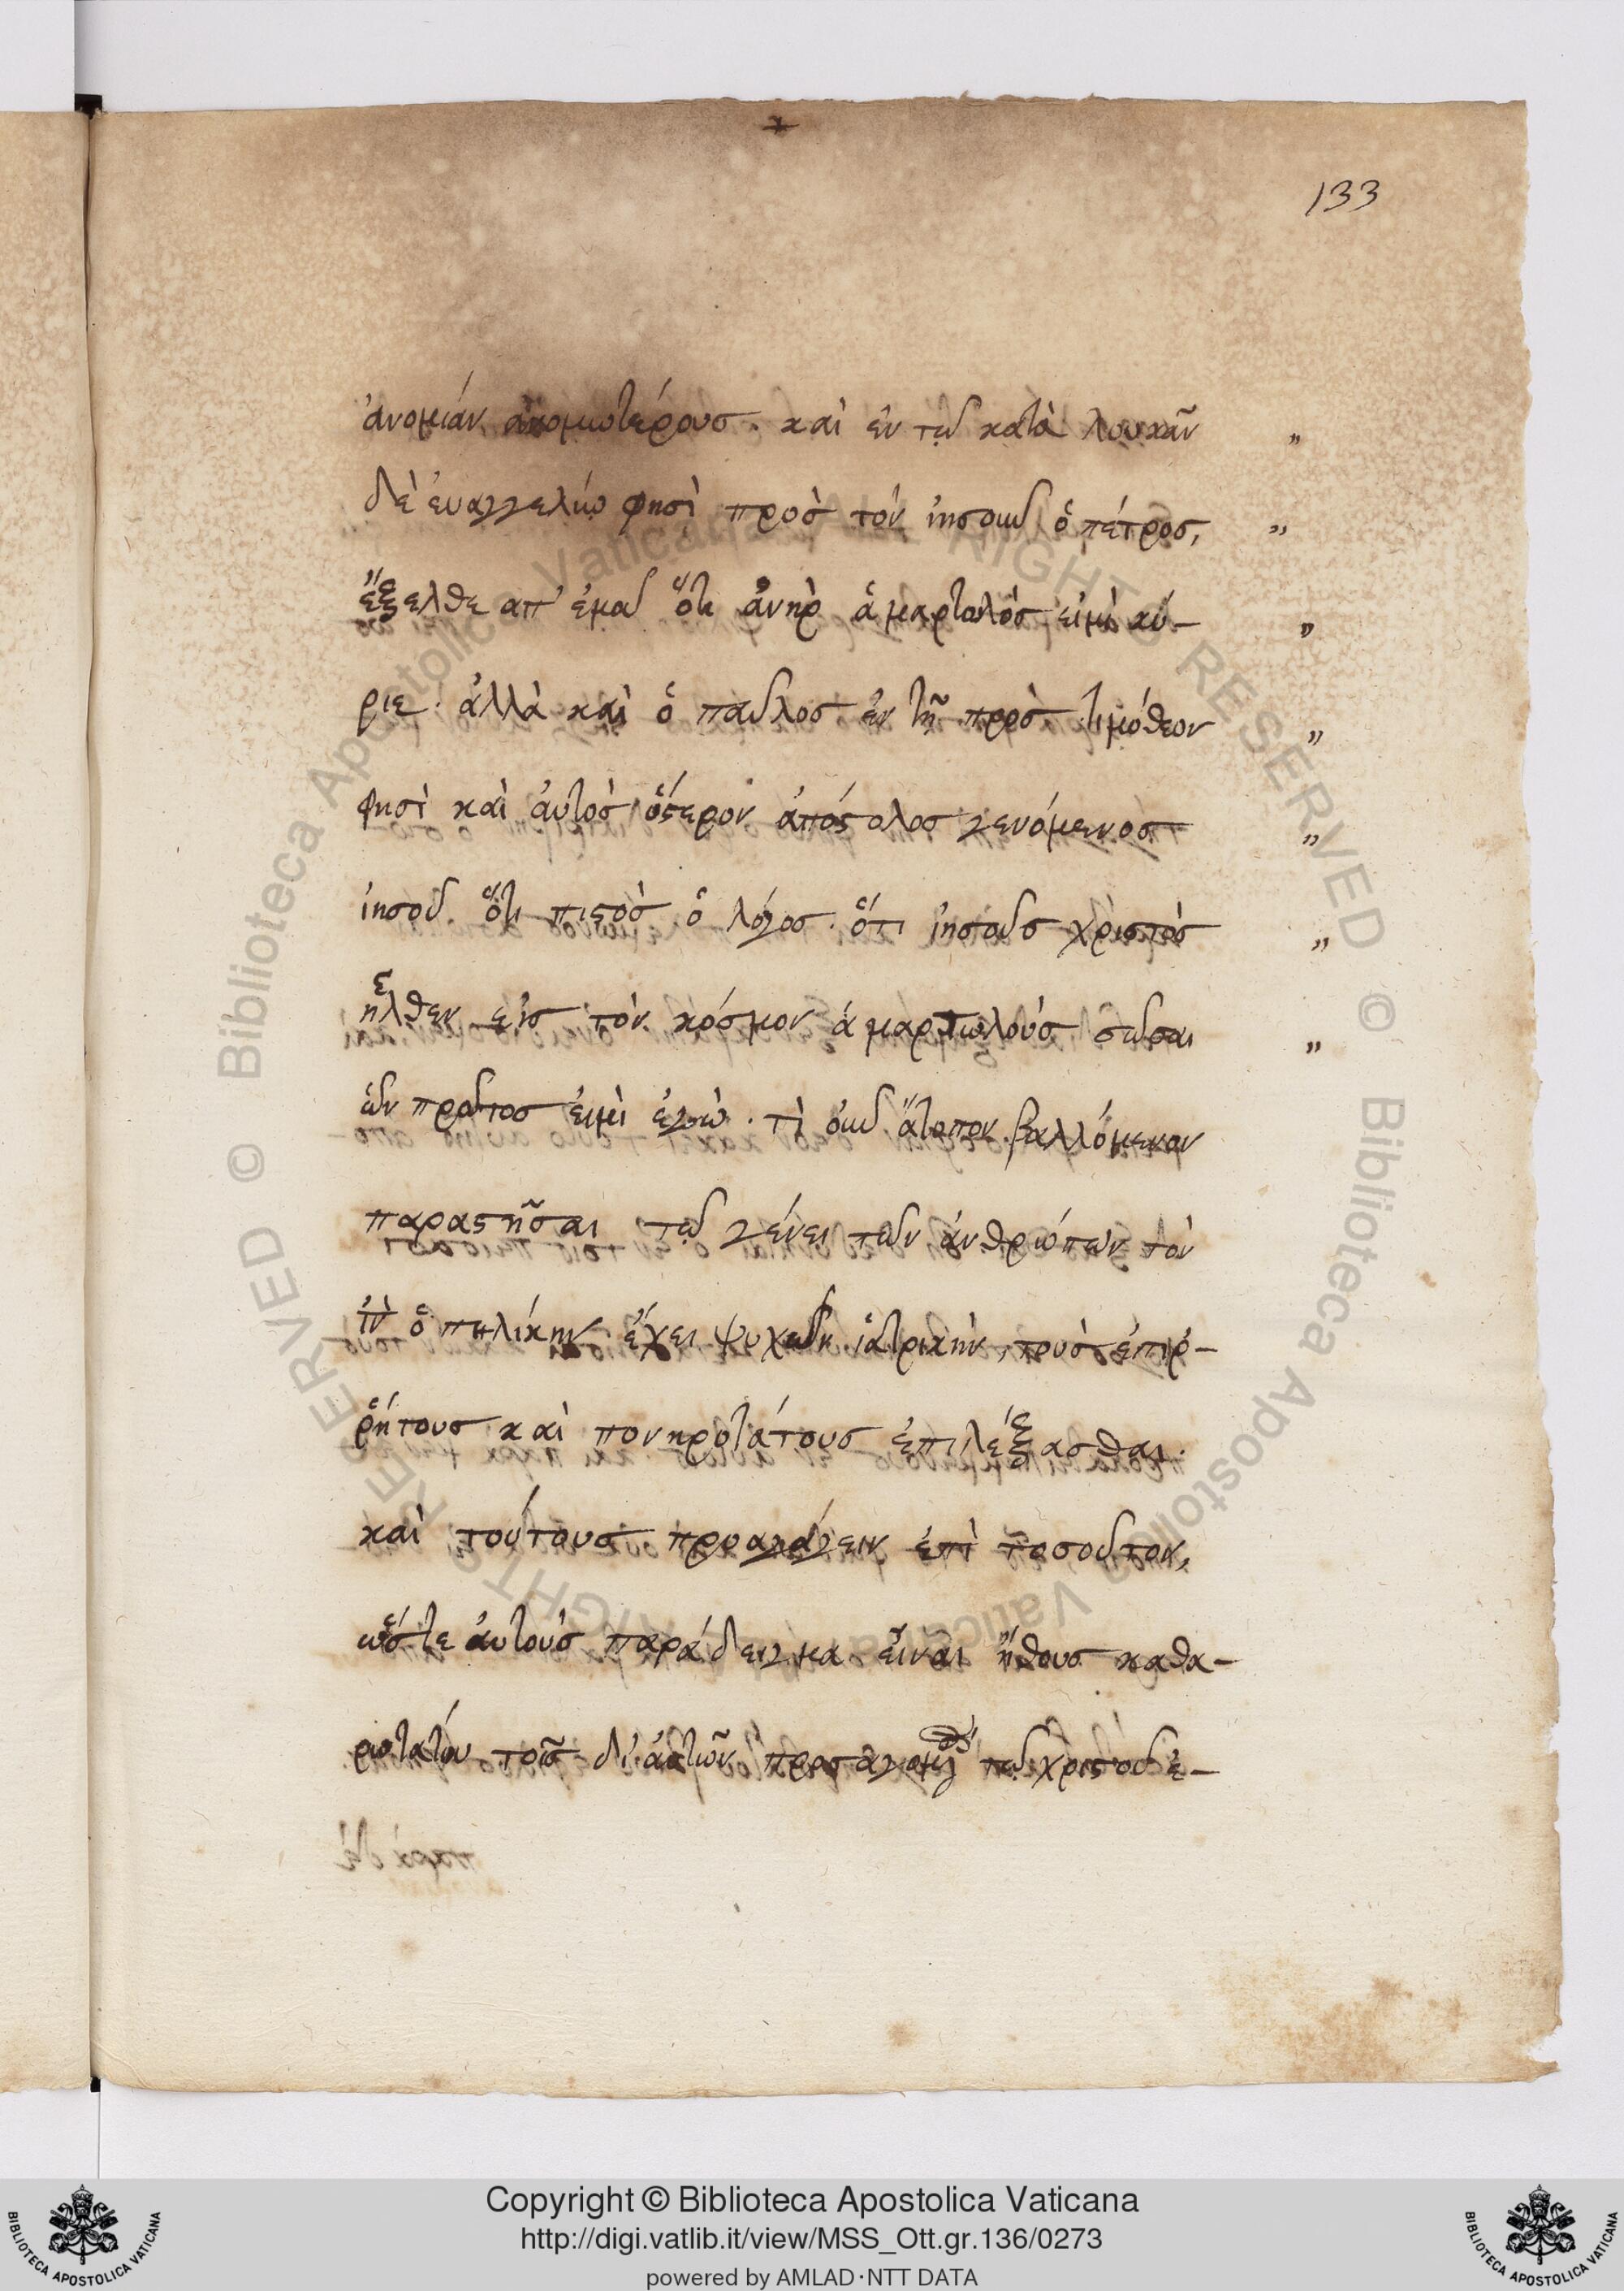 133
ἀνομίαν ἀνομωτέρους. καὶ ἐν τῶ κατὰ λουκᾶν „
δὲ ἐυαγγελίω φησὶ πρὸσ τὸν ἰησοῦν ὁ πέτροσ, „
ἔξελθε απ' ἐμοῦ ὅτι ἀνὴρ ἁμαρτωλόσ εἰμι κύ- „
ριε. ἀλλὰ καὶ ὁ παῦλοσ ἐν τῆ πρὸσ τιμόθεον „
φησὶ καὶ ἀυτὸσ ὕστερον ἀπόστολοσ γενόμενοσ „
ἰησοῦ. ὅτι πιστὸσ ὁ λόγοσ. ὅτι ἰησοῦσ χριστὸσ „
ἦλθεν εἰσ τὸν κόσμον ἁμαρτωλοὺσ σῶσαι „
ὧν πρῶτοσ ἐιμὶ ἐγώ. τὶ οὖν ἄτοπον βαλλόμενον
παραστῆσαι τῶ γένει τῶν ἀνθρώπων τὸν
ἰν̅ ὁπηλίκην ἔχει ψυχῶν ἰατρικὴν, τοὺσ ἐπιρ-
ρήτουσ καὶ πονηροτάτουσ ἐπιλέξασθαι.
καὶ τούτουσ προαγάγειν ἐπὶ τοσοῦτον,
ὥστε ἀυτοὺσ παράδειγμα εἶναι ἤθουσ καθα-
ρωτάτου τοῖσ δι' ἀυτῶν προσαγομένοις τῶ χριστοῦ ἐ-
Copyright © Biblioteca Apostolica Vaticana
http://digi.vatlib.it/view/MSS_Ott.gr.136/0273
powered by AMLAD·NTT DATA
© Biblioteca Apostolica Vaticana ALL RIGHTS RESERVED
© Biblioteca Apostolica Vaticana ALL RIGHTS RESERVED
BIBLIOTECA APOSTOLICA VATICANA
BIBLIOTECA APOSTOLICA VATICANA